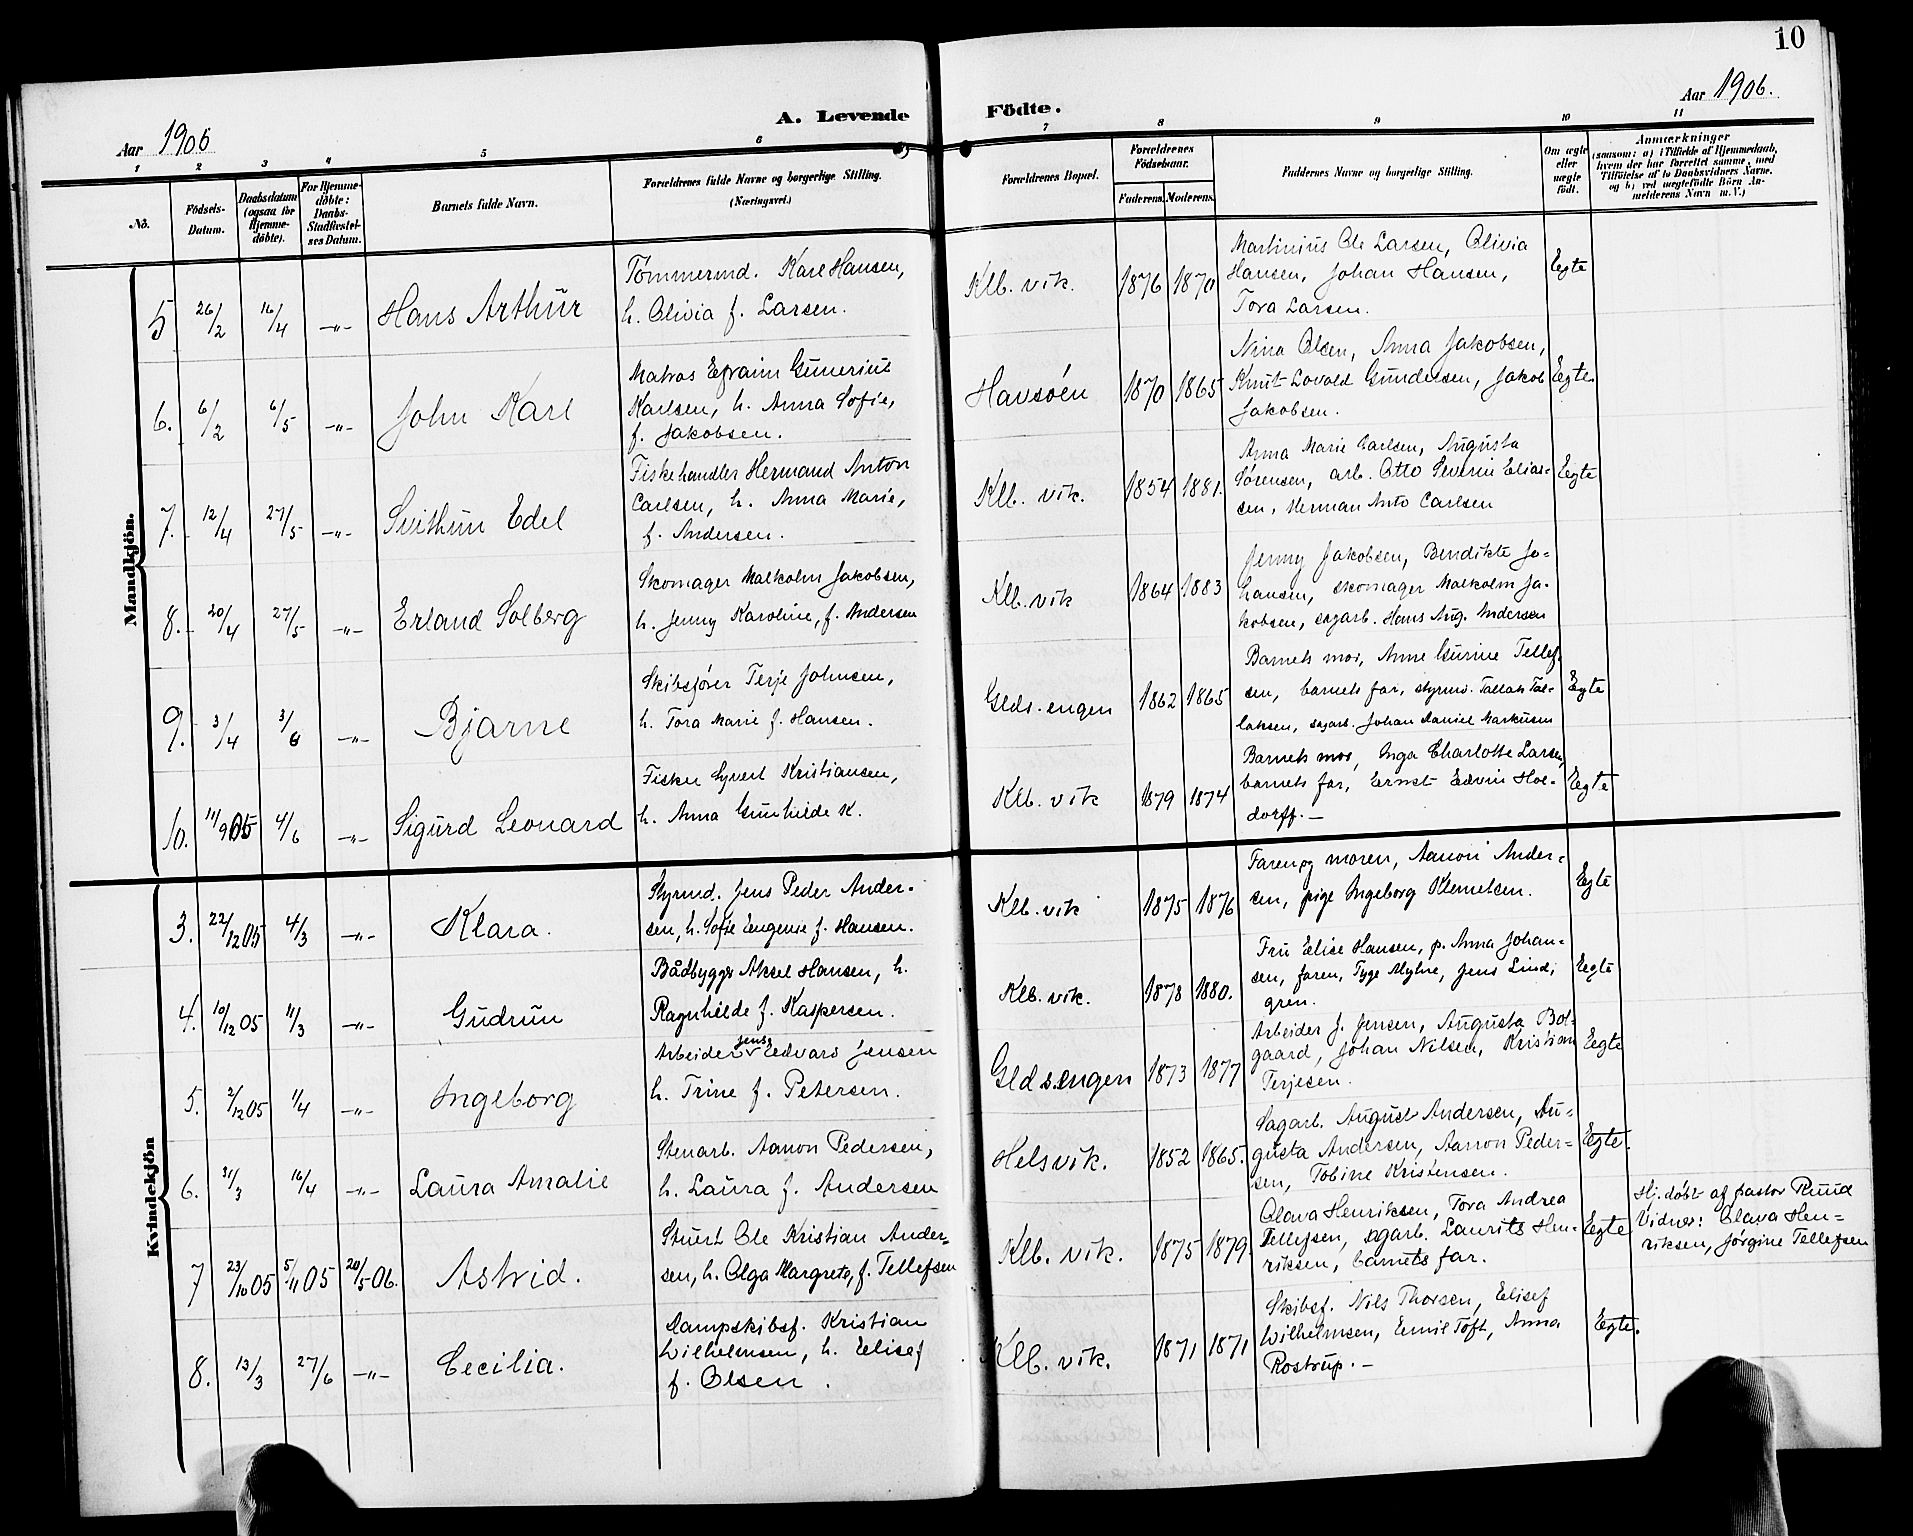 10
Aar 1906
A. Levende Födte.
Aar 1906.
1 2 3 4 5 6 7 8 9 10 11
No.
Födsels-Datum.
Daabsdatum (ogsaa for Hjemme-döbte).
For Hjemme-döbte: Daabs-Stadfæstel-ses Datum.
Barnets fulde Navn.
Forældrenes fulde Navne og borgerlige Stilling.
(Næringsvei.)
Forældrenes Bopæl.
Forældrenes Födselsaar.
Faderens. Moderens.
Faddernes Navne og borgerlige Stilling.
Om ægte eller uægte født.
Anmærkninger
(saasom: a) i Tilfælde af Hjemmedaab, hvem der har forrettet samme, med Tilföielse af to Daabsvidners Navne, og b) ved uægtefödte Börn An-melderens Navn m. V.)
Mandkjön.
5 26/2 16/4 -"- Hans Arthur
Tømmermd. Karl Hansen,
h. Olivia f. Larsen.
Klb. vik. 1876 1870
Martinius Ole Larsen, Olivia
Hansen, Johan Hansen,
Tora Larsen.
Egte
6. 6/2 6/5 -"- John Karl
Matros Efraim Gunerius
Karlsen, h. Anna Sofie,
f. Jakobsen.
Havsøen 1870 1865
Nina Olsen, Anna Jakobsen,
Knut Lovald Gundersen, Jakob
Jakobsen.
Egte
7. 12/4 27/5 -"- Svithun Edel
Fiskehandler Hermand Anton
Carlsen, h. Anna Marie,
f. Andersen.
Klb. vik. 1854 1881.
Anna Marie Carlsen, Augusta
Sørensen, arb. Otto Severin Elias-
sen, Herman Anto Carlsen
Egte
8. 20/4 27/5 -"- Erland Solberg
Skomager Malkolm Jakobsen,
h. Jenny Karoline, f. Andersen
Klb. vik 1864 1883
Jenny Jakobsen, Bendikte Jo-
hansen, skomager Malkolm Ja-
kobsen, sagarb. Hans Aug. Andersen
9. 3/4 3/6 -"- Bjarne
Skibsfører Terje Johnsen,
h. Tora Marie f. Hansen.
Glds. engen 1862 1865
Barnets mor, Anne Gurine Tellef-
sen, barnets far, styrm. Tallak Tal-
laksen, sagarb. Johan Daniel Markusen
Egte
10. 11/9 05 4/6 -"- Sigurd Leonard
Fisker Syvert Kristiansen,
h. Anna Gunhilde K.
Klb. vik 1879 1874
Barnets mor, Inga Charlotte Larsen,
barnets far, Ernst Edvin Hol-
dorff. —
Egte
Kvindekjön
3. 22/12 05 4/3 -"- Klara.
Styrmd. Jens Peder Ander-
sen, h. Sofie Eugenie f. Hansen.
Klb. vik 1875 1876
Faren og moren, Aanon Ander-
sen, pige Ingeborg Klemetsen.
Egte
4. 10/12 05 11/3 -"- Gudrun
Bådbygger Aksel Hansen, h.
Ragnhilde f. Kaspersen.
Klb. vik. 1878 1880.
Fru Elise Hansen, p. Anna Johan-
sen, faren, Tyge Myhre, Jens Lind-
gren.
Egte
5. 2/12 05 1/4 -"- Ingeborg
Arbeider Jens Edvard Jensen
h. Trine f. Petersen.
Glds.engen 1873 1877
Arbeider J. Jensen, Augusta Bol-
gaard, Johan Nilsen, Kristian
Terjesen.
Egte
6. 31/3 16/4 -"- Laura Amalie
Stenarb. Aanon Pedersen,
h. Laura f. Andersen
Helsvik. 1852 1865.
Sagarb. August Andersen, Au-
gusta Andersen, Aanon Peder-
sen, Tobine Kristensen.
Egte.
7 23/10 05 5/11 05 20/5 06. Astrid.
Stuert Ole Kristian Ander-
sen, h. Olga Margrete, f. Tellefsen
Klb. vik. 1875 1879.
Olava Henriksen, Tora Andrea
Tellefsen, sagarb. Laurits Hen-
riksen, barnets far.
Egte
Hj. døbt af pastor Ruud
Vidner: Olava Hen-
riksen, Jørgine Tellefsen
8. 13/3 27/6 -"- Cecilia.
Dampskibsf. Kristian
Wilhelmsen, h. Elisef
f. Olsen.
Klb. vik. 1871 1871
Skibsf. Nils Thorsen, Elisef
Wilhelmsen, Emil Toft, Anna
Rostrup. —
Egte.